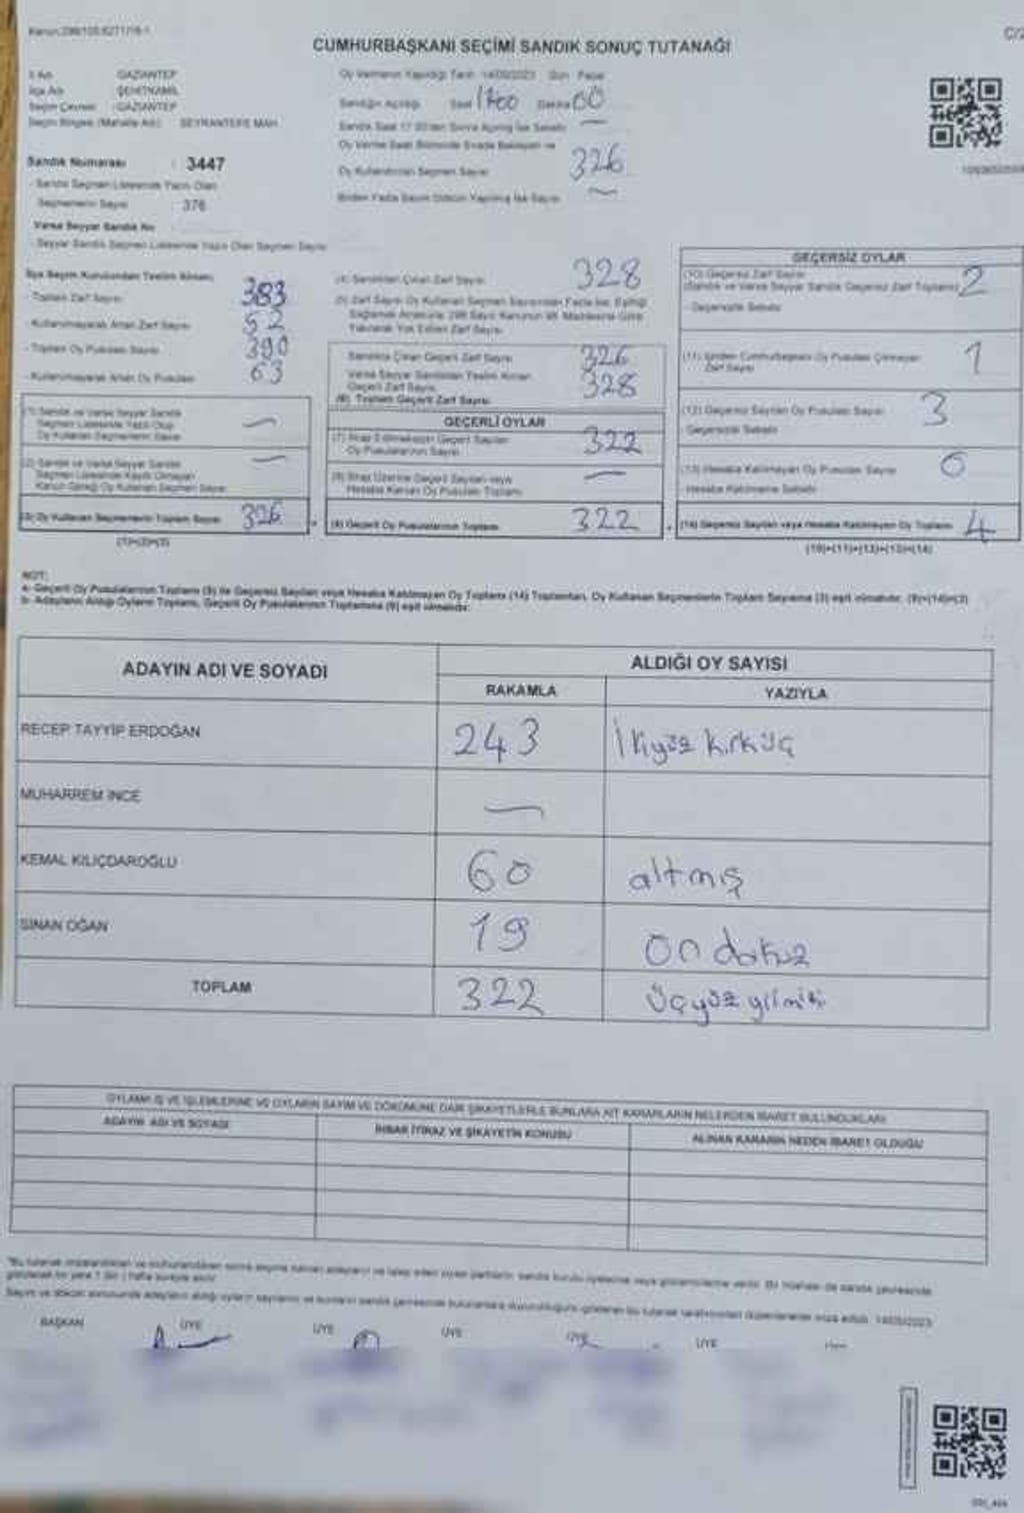 Kanun:298/105;6271/18-1
C/2
CUMHURBAŞKANI SEÇİMİ SANDIK SONUÇ TUTANAĞI
İl Adı : GAZİANTEP
İlçe Adı : ŞEHİTKAMİL
Seçim Çevresi : GAZİANTEP
Seçim Bölgesi (Mahalle Adı) : SEYRANTEPE MAH.
Sandık Numarası : 3447
- Sandık Seçmen Listesinde Yazılı Olan
Seçmenlerin Sayısı : 376
Varsa Seyyar Sandık No
- Seyyar Sandık Seçmen Listesinde Yazılı Olan Seçmen Sayısı
Oy Vermenin Yapıldığı Tarih : 14/05/2023 Gün : Pazar
Sandığın Açıldığı Saat 1700 Dakika 00
Sandık Saat 17.00'den Sonra Açılmış İse Sebebi —
Oy Verme Saati Bitiminde Sırada Bekleyen ve
Oy Kullandırılan Seçmen Sayısı 326
Birden Fazla Sayım Döküm Yapılmış İse Sayısı —
İlçe Seçim Kurulundan Teslim Alınan;
- Toplam Zarf Sayısı 383
- Kullanılmayarak Artan Zarf Sayısı 52
- Toplam Oy Pusulası Sayısı 390
- Kullanılmayarak Artan Oy Pusulası 63
(1) Sandık ve Varsa Seyyar Sandık
Seçmen Listesinde Yazılı Olup
Oy Kullanan Seçmenlerin Sayısı —
(2) Sandık ve Varsa Seyyar Sandık
Seçmen Listesinde Kayıtlı Olmayan
Kanun Gereği Oy Kullanan Seçmen Sayısı —
(3) Oy Kullanan Seçmenlerin Toplam Sayısı 326
(1)+(2)=(3)
(4) Sandıktan Çıkan Zarf Sayısı 328
(5) Zarf Sayısı Oy Kullanan Seçmen Sayısından Fazla İse, Eşitliği
Sağlamak Amacıyla 298 Sayılı Kanunun 98. Maddesine Göre
Yakılarak Yok Edilen Zarf Sayısı
Sandıkta Çıkan Geçerli Zarf Sayısı 326
Varsa Seyyar Sandıktan Teslim Alınan
Geçerli Zarf Sayısı 328
(6) Toplam Geçerli Zarf Sayısı
GEÇERLİ OYLAR
(7) İtiraz Edilmeksizin Geçerli Sayılan
Oy Pusulalarının Sayısı 322
(8) İtiraz Üzerine Geçerli Sayılan veya
Hesaba Katılan Oy Pusulası Toplamı —
(9) Geçerli Oy Pusulalarının Toplamı 322
GEÇERSİZ OYLAR
(10) Geçersiz Zarf Sayısı
(Sandık ve Varsa Seyyar Sandık Geçersiz Zarf Toplamı) 2
- Geçersizlik Sebebi
(11) İçinden Cumhurbaşkanı Oy Pusulası Çıkmayan
Zarf Sayısı 1
(12) Geçersiz Sayılan Oy Pusulası Sayısı 3
- Geçersizlik Sebebi
(13) Hesaba Katılmayan Oy Pusulası Sayısı 0
- Hesaba Katılmama Sebebi
(14) Geçersiz Sayılan veya Hesaba Katılmayan Oy Toplamı 4
(10)+(11)+(12)+(13)=(14)
NOT:
a- Geçerli Oy Pusulalarının Toplamı (9) ile Geçersiz Sayılan veya Hesaba Katılmayan Oy Toplamı (14) Toplamları, Oy Kullanan Seçmenlerin Toplam Sayısına (3) eşit olmalıdır. (9)+(14)=(3)
b- Adayların Aldığı Oyların Toplamı, Geçerli Oy Pusulalarının Toplamına (9) eşit olmalıdır.
ADAYIN ADI VE SOYADI
ALDIĞI OY SAYISI
RAKAMLA YAZIYLA
RECEP TAYYİP ERDOĞAN 243 İkiyüz kırküç
MUHARREM İNCE —
KEMAL KILIÇDAROĞLU 60 altmış
SİNAN OĞAN 19 On dokuz
TOPLAM 322 Üçyüz yirmiki
OYLAMA İŞ VE İŞLEMLERİNE VE OYLARIN SAYIM VE DÖKÜMÜNE DAİR ŞİKAYETLERLE BUNLARA AİT KARARLARIN NELERDEN İBARET BULUNDUKLARI
ADAYIN ADI VE SOYADI
İHBAR İTİRAZ VE ŞİKAYETİN KONUSU
ALINAN KARARIN NEDEN İBARET OLDUĞU
BAŞKAN ÜYE ÜYE ÜYE ÜYE ÜYE